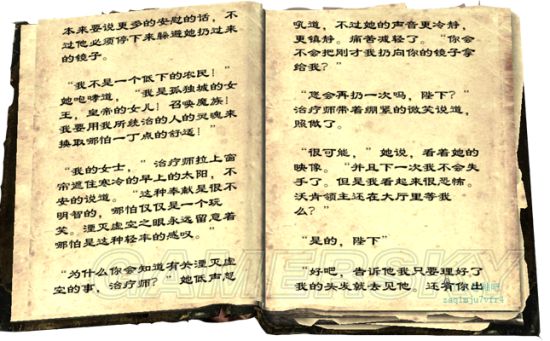 本来要说更多的安慰的话，不
过他必须停下来躲避她扔过来
的镜子。
“我不是一个低下的农民！”
她咆哮道，“我是孤独城的女
王，皇帝的女儿！召唤魔族！
我要用我所统治的人的灵魂来
换取哪怕一丁点的舒适！”
“我的女士，”治疗师拉上窗
帘遮住寒冷的早上的太阳，不
安的说道。“这种奉献是很不
明智的，哪怕仅仅是一个玩
笑。湮灭虚空之眼永远留意着
哪怕是这种轻率的感叹。”
“为什么你会知道有关湮灭虚
空的事，治疗师？”她低声怒
吼道，不过她的声音更冷静，
更镇静。痛苦减轻了。“你会
不会把刚才我扔向你的镜子拿
给我？”
“您会再扔一次吗，陛下？”
治疗师带着绷紧的微笑说道，
照做了。
“很可能，”她说，看着她的
映像。“并且下一次我不会失
手了。但是我看起来很恐怖。
沃肯领主还在大厅里等我
么？”
“是的，陛下”
“好吧，告诉他我只要理好了
我的头发就去见他，还有你出
GAMERSKY
zaqimju7vfr4